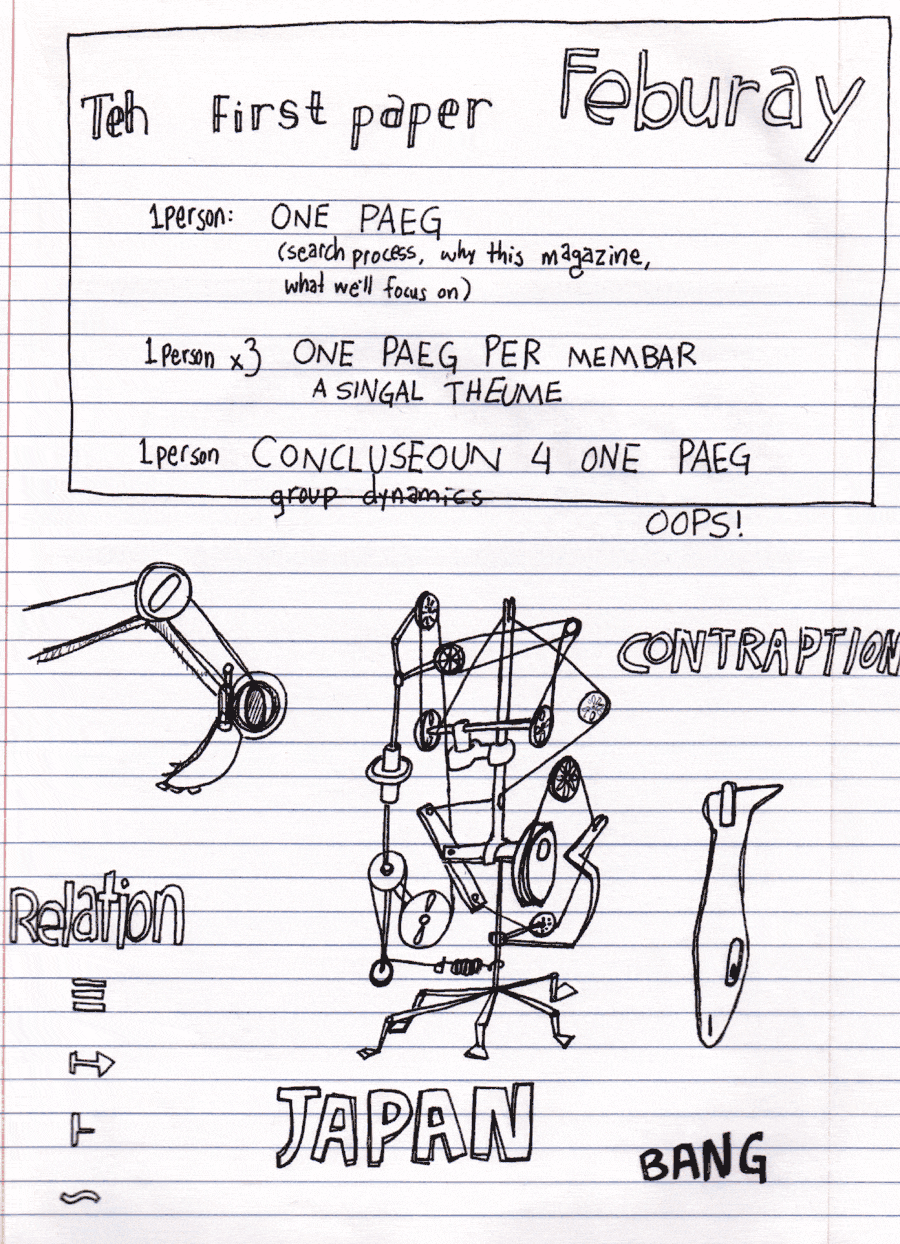 Teh First paper Feburay
1person: ONE PAEG
(search process, why this magazine,
what we'll focus on)
1person x3 ONE PAEG PER MEMBAR
A SINGAL THEUME
1person CONCLUSEOUN 4 ONE PAEG
group dynamics
OOPS!
CONTRAPTION
Relation
≡
↦
⊢
~
JAPAN
BANG